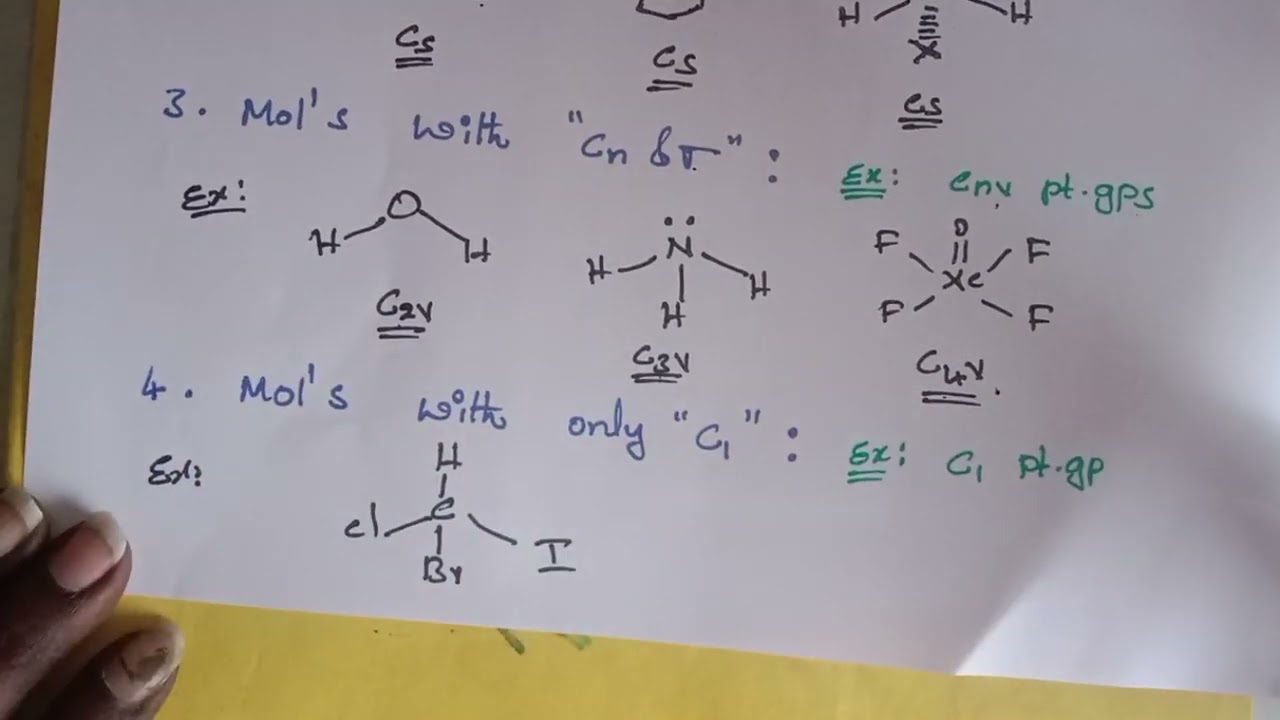 H H
X
Cs Cs Cs
3. Mol's with "Cn & σ" : Ex: Cnv pt.gps
Ex:
O
H H
C2v
N
H H
H
C3v
O
F F
Xe
F F
C4v.
4. Mol's with only "C1" : Ex: C1 pt.gp
Ex:
H
Cl C I
Br